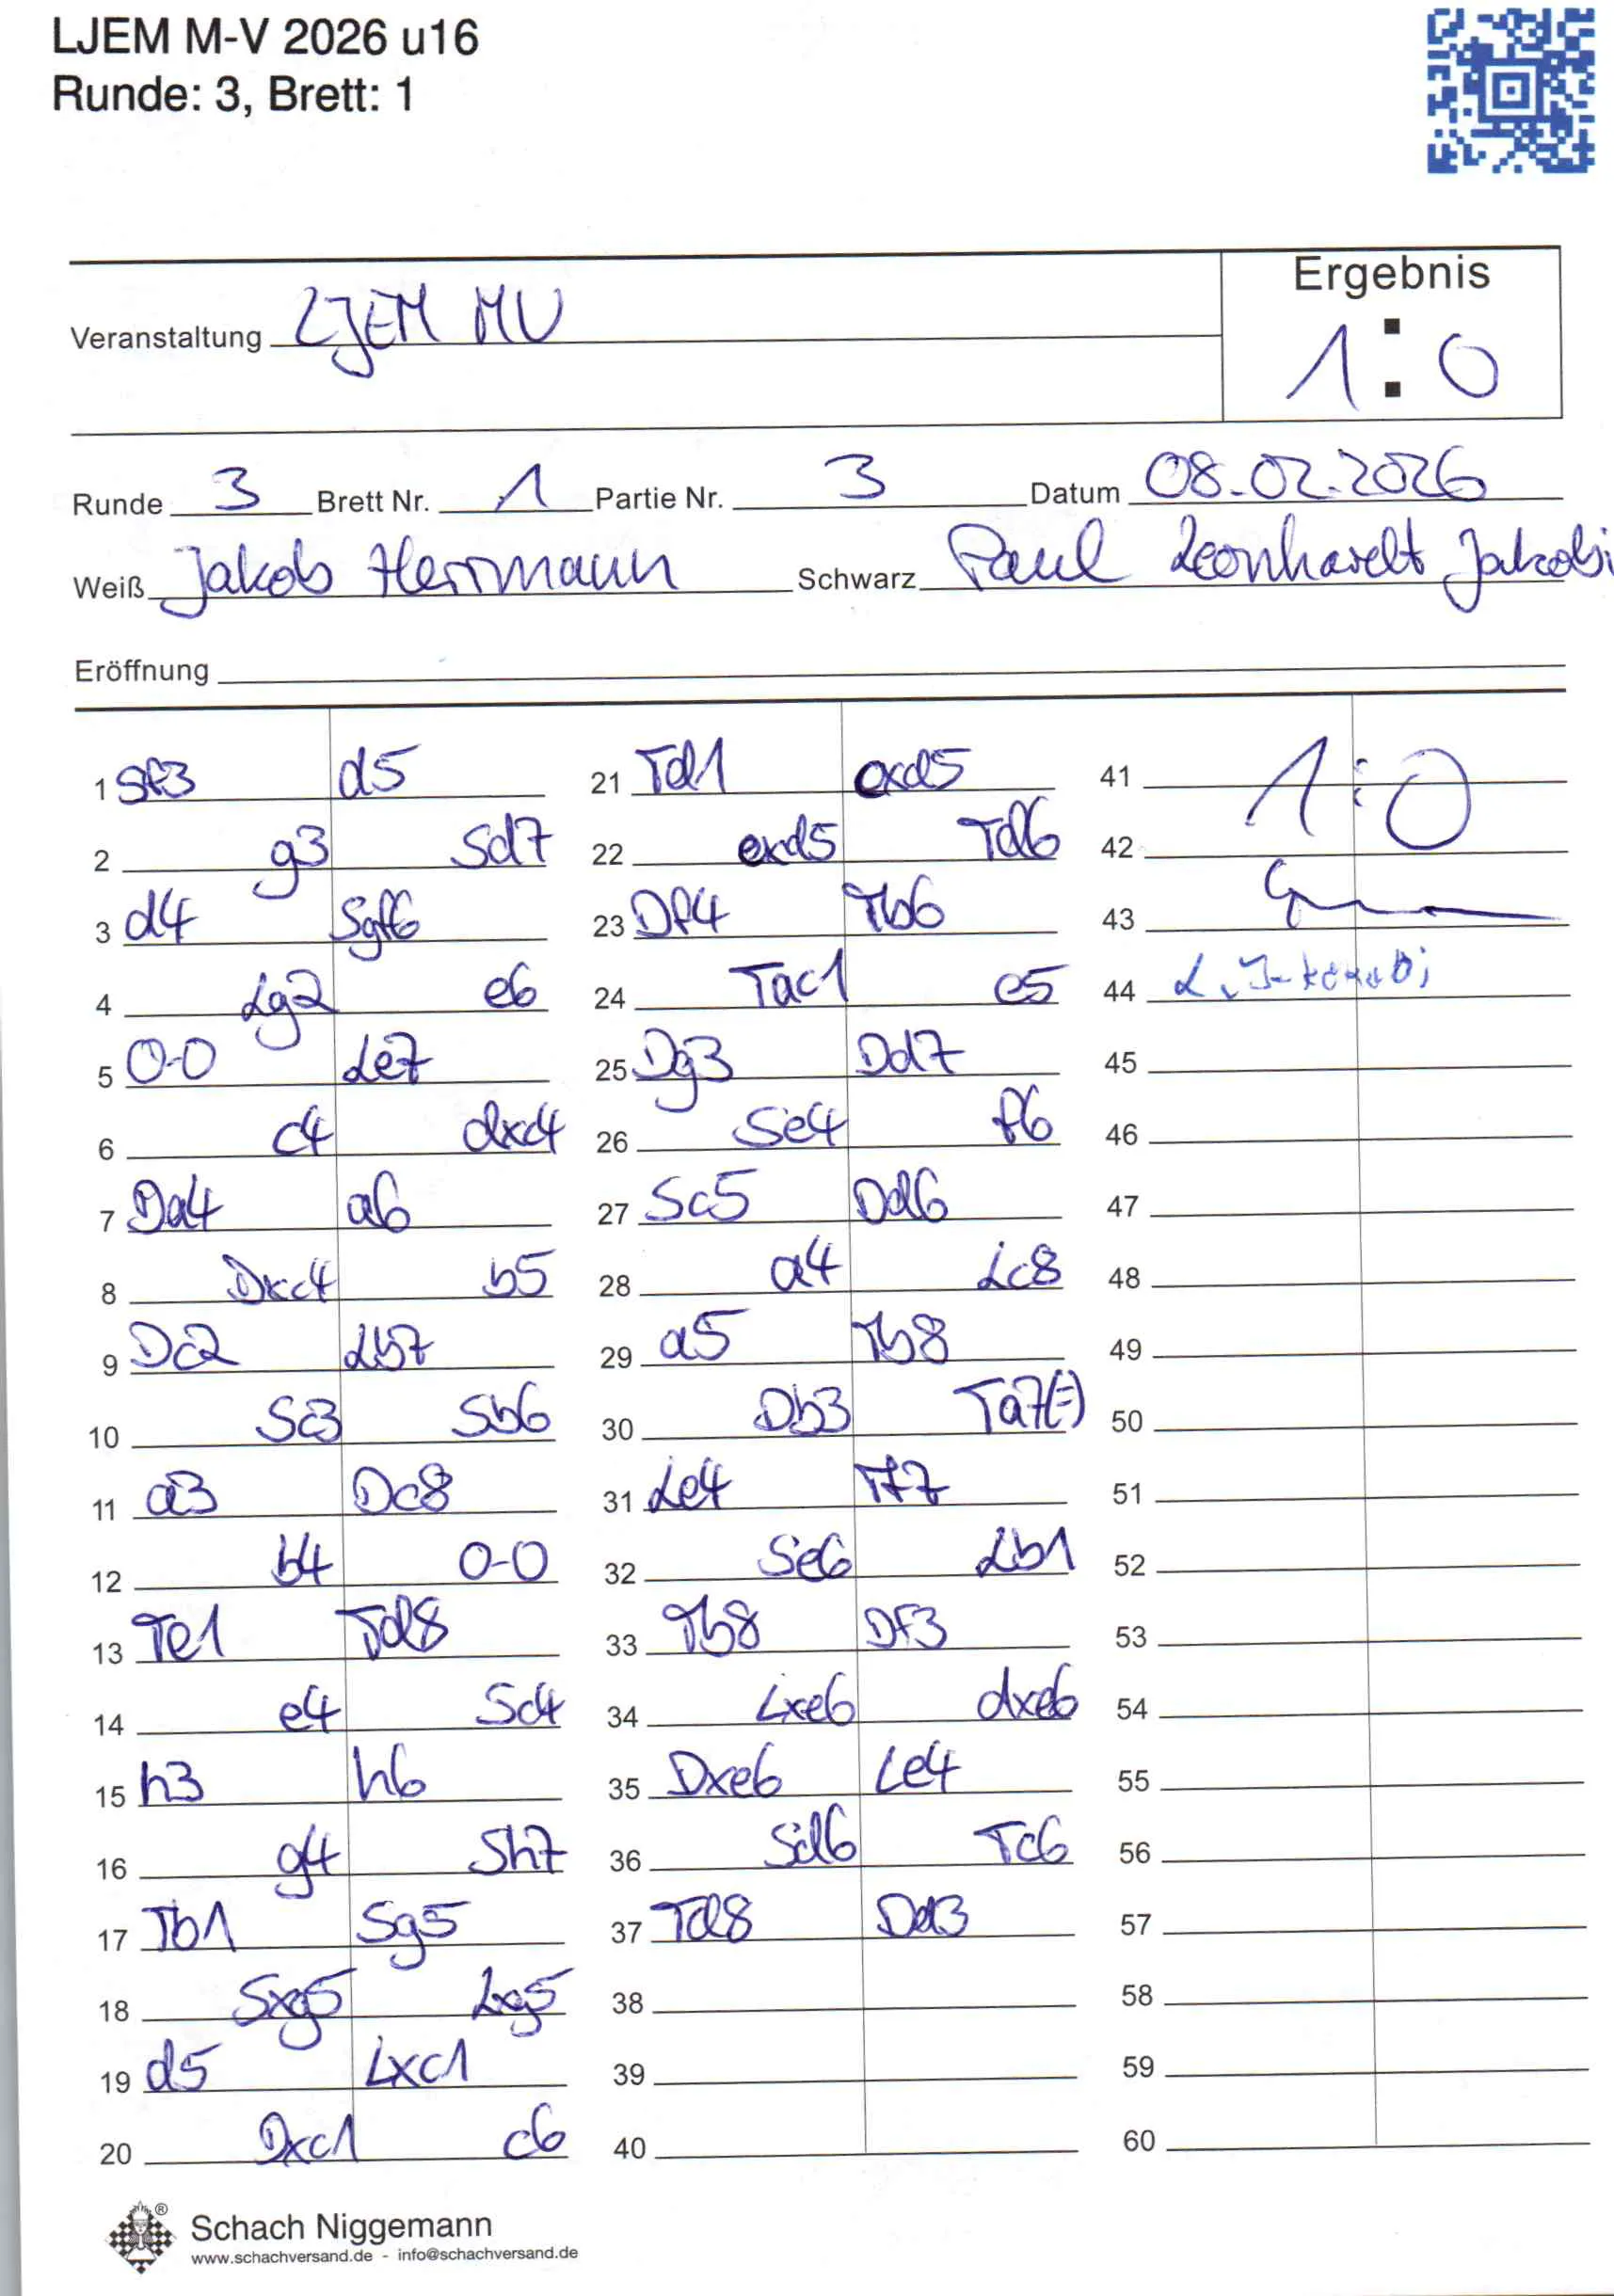 LJEM M-V 2026 u16
Runde: 3, Brett: 1
Ergebnis
Veranstaltung LJEM MV
1:0
Runde 3 Brett Nr. 1 Partie Nr. 3 Datum 08.02.2026
Weiß Jakob Herrmann Schwarz Paul Leonhardt Jakobi
Eröffnung
1 Sf3 d5
2 g3 Sd7
3 d4 Sgf6
4 Lg2 e6
5 0-0 Le7
6 c4 dxc4
7 Da4 a6
8 Dxc4 b5
9 Dc2 Lb7
10 Sc3 Sb6
11 a3 Dc8
12 b4 0-0
13 Te1 Td8
14 e4 Sc4
15 h3 h6
16 g4 Sh7
17 Tb1 Sg5
18 Sxg5 Lxg5
19 d5 Lxc1
20 Dxc1 c6
21 Td1 cxd5
22 exd5 Td6
23 Df4 Tb6
24 Tac1 e5
25 Dg3 Dd7
26 Se4 f6
27 Sc5 Dd6
28 a4 Lc8
29 a5 Tb8
30 Db3 Ta7(=)
31 Le4 Tf7
32 Se6 Lb1
33 Tb8 Df3
34 Lxe6 dxe6
35 Dxe6 Le4
36 Sd6 Tc6
37 Td8 Dd3
38
39
40
41 1:0
42
43
44
45
46
47
48
49
50
51
52
53
54
55
56
57
58
59
60
Schach Niggemann
www.schachversand.de - info@schachversand.de